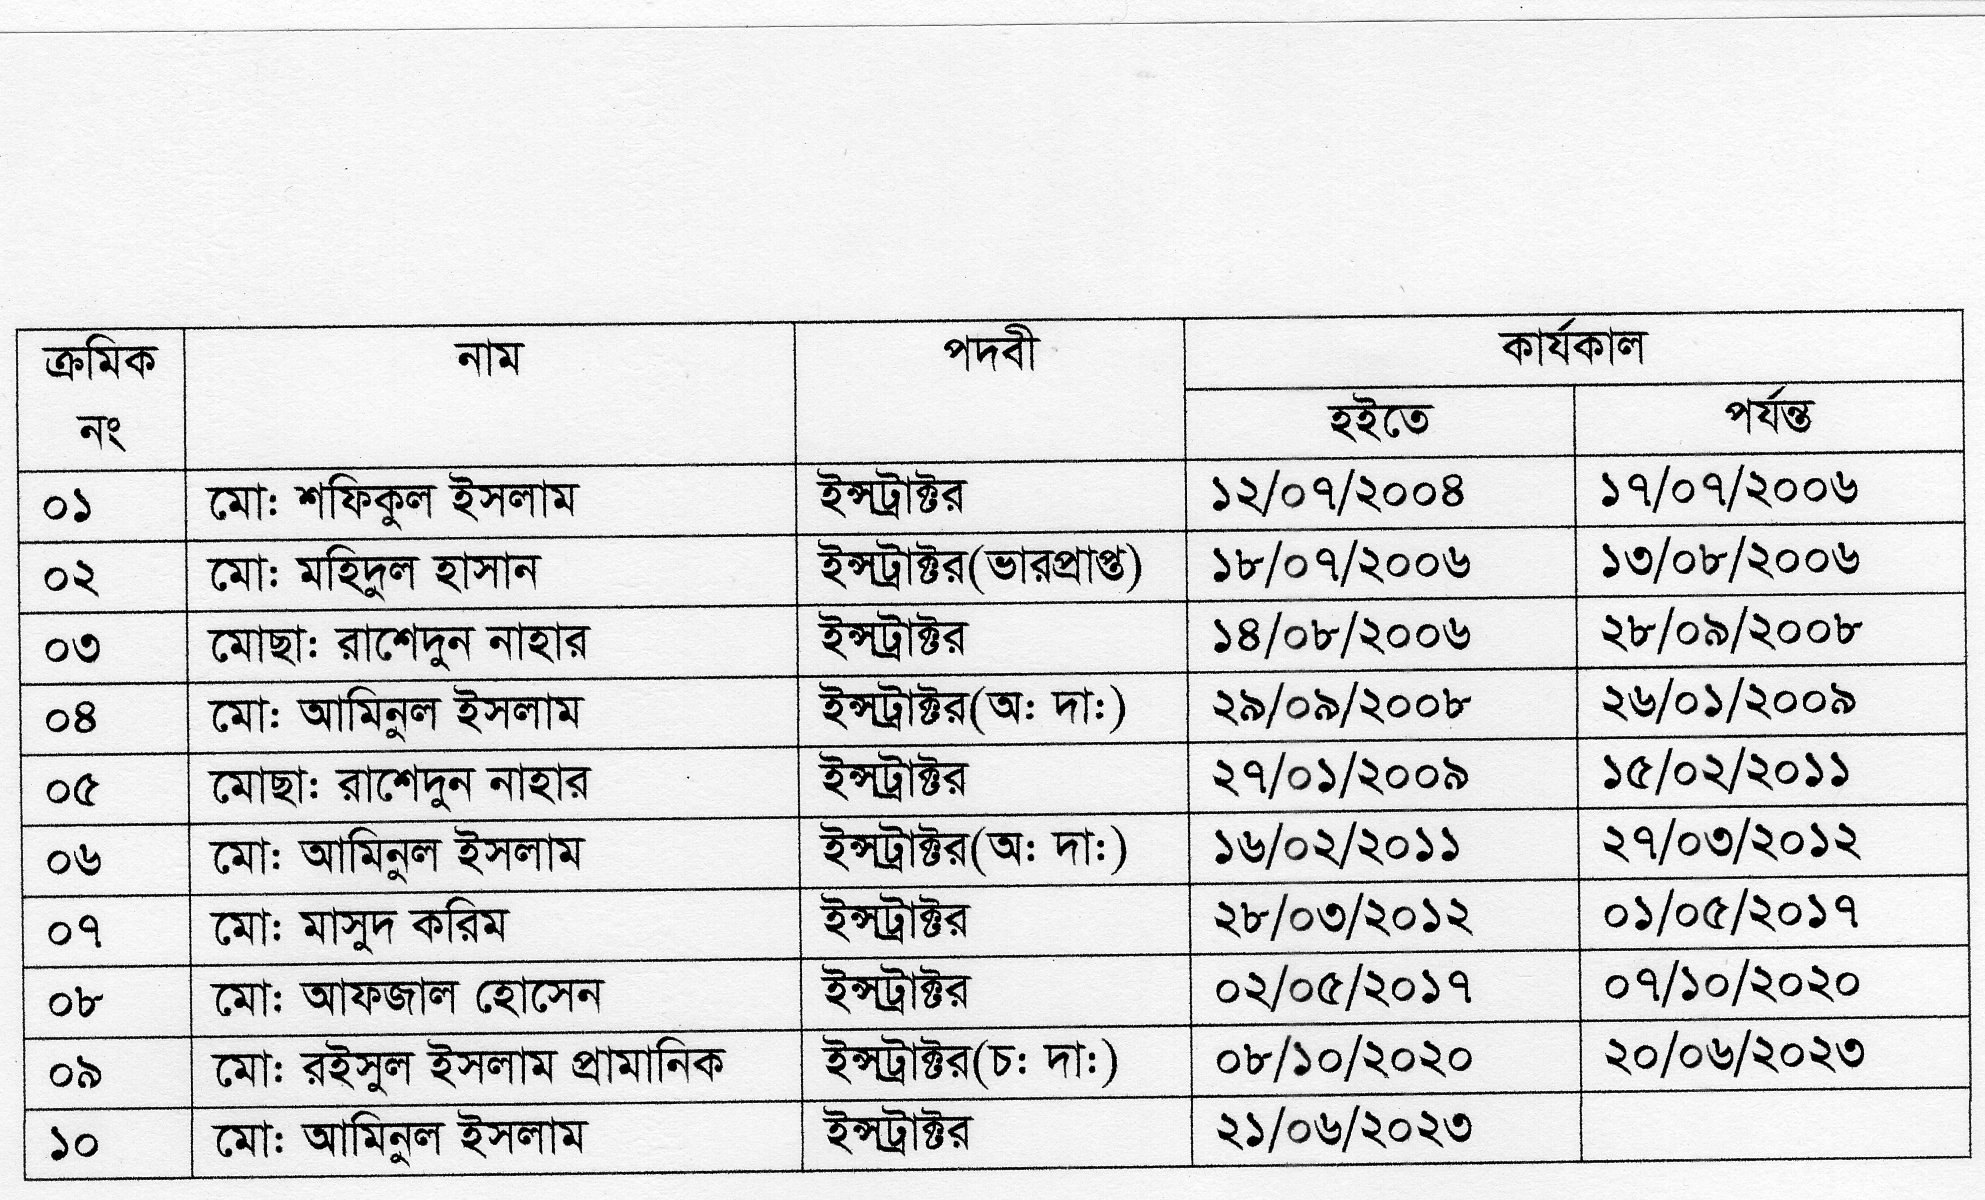 ক্রমিক নং নাম পদবী কার্যকাল
হইতে পর্যন্ত
০১ মো: শফিকুল ইসলাম ইন্সট্রাক্টর ১২/০৭/২০০৪ ১৭/০৭/২০০৬
০২ মো: মহিদুল হাসান ইন্সট্রাক্টর(ভারপ্রাপ্ত) ১৮/০৭/২০০৬ ১৩/০৮/২০০৬
০৩ মোছা: রাশেদুন নাহার ইন্সট্রাক্টর ১৪/০৮/২০০৬ ২৮/০৯/২০০৮
০৪ মো: আমিনুল ইসলাম ইন্সট্রাক্টর(অ: দা:) ২৯/০৯/২০০৮ ২৬/০১/২০০৯
০৫ মোছা: রাশেদুন নাহার ইন্সট্রাক্টর ২৭/০১/২০০৯ ১৫/০২/২০১১
০৬ মো: আমিনুল ইসলাম ইন্সট্রাক্টর(অ: দা:) ১৬/০২/২০১১ ২৭/০৩/২০১২
০৭ মো: মাসুদ করিম ইন্সট্রাক্টর ২৮/০৩/২০১২ ০১/০৫/২০১৭
০৮ মো: আফজাল হোসেন ইন্সট্রাক্টর ০২/০৫/২০১৭ ০৭/১০/২০২০
০৯ মো: রইসুল ইসলাম প্রামানিক ইন্সট্রাক্টর(চ: দা:) ০৮/১০/২০২০ ২০/০৬/২০২৩
১০ মো: আমিনুল ইসলাম ইন্সট্রাক্টর ২১/০৬/২০২৩